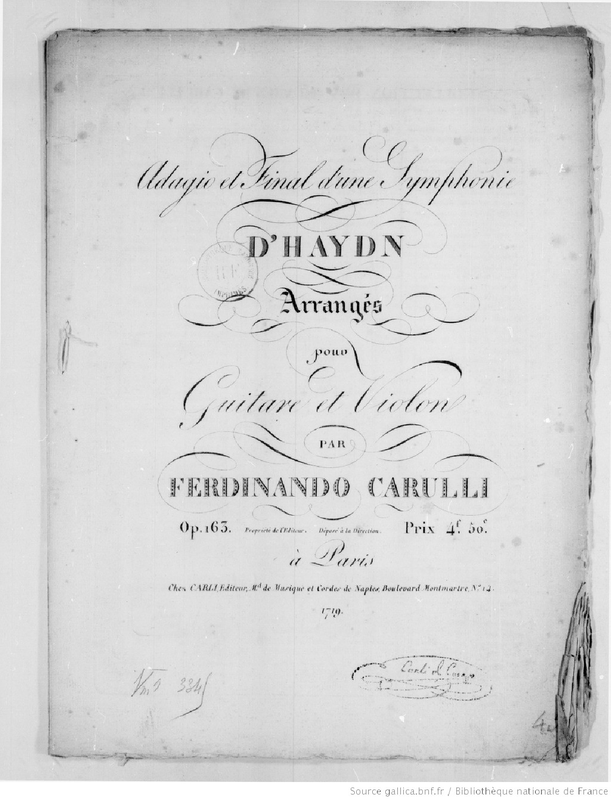 Adagio et Final d'une Symphonie
D'HAYDN
Arrangés
pour
Guitare et Violon
PAR
FERDINANDO CARULLI
Op. 163. Propriété de l'Editeur. Déposé à la Direction. Prix 4f. 50c.
à Paris
Chez CARLI, Editeur, Md. de Musique et Cordes de Naples, Boulevard Montmartre, No. 14.
1719.
Vm9 334
Source gallica.bnf.fr / Bibliothèque nationale de France